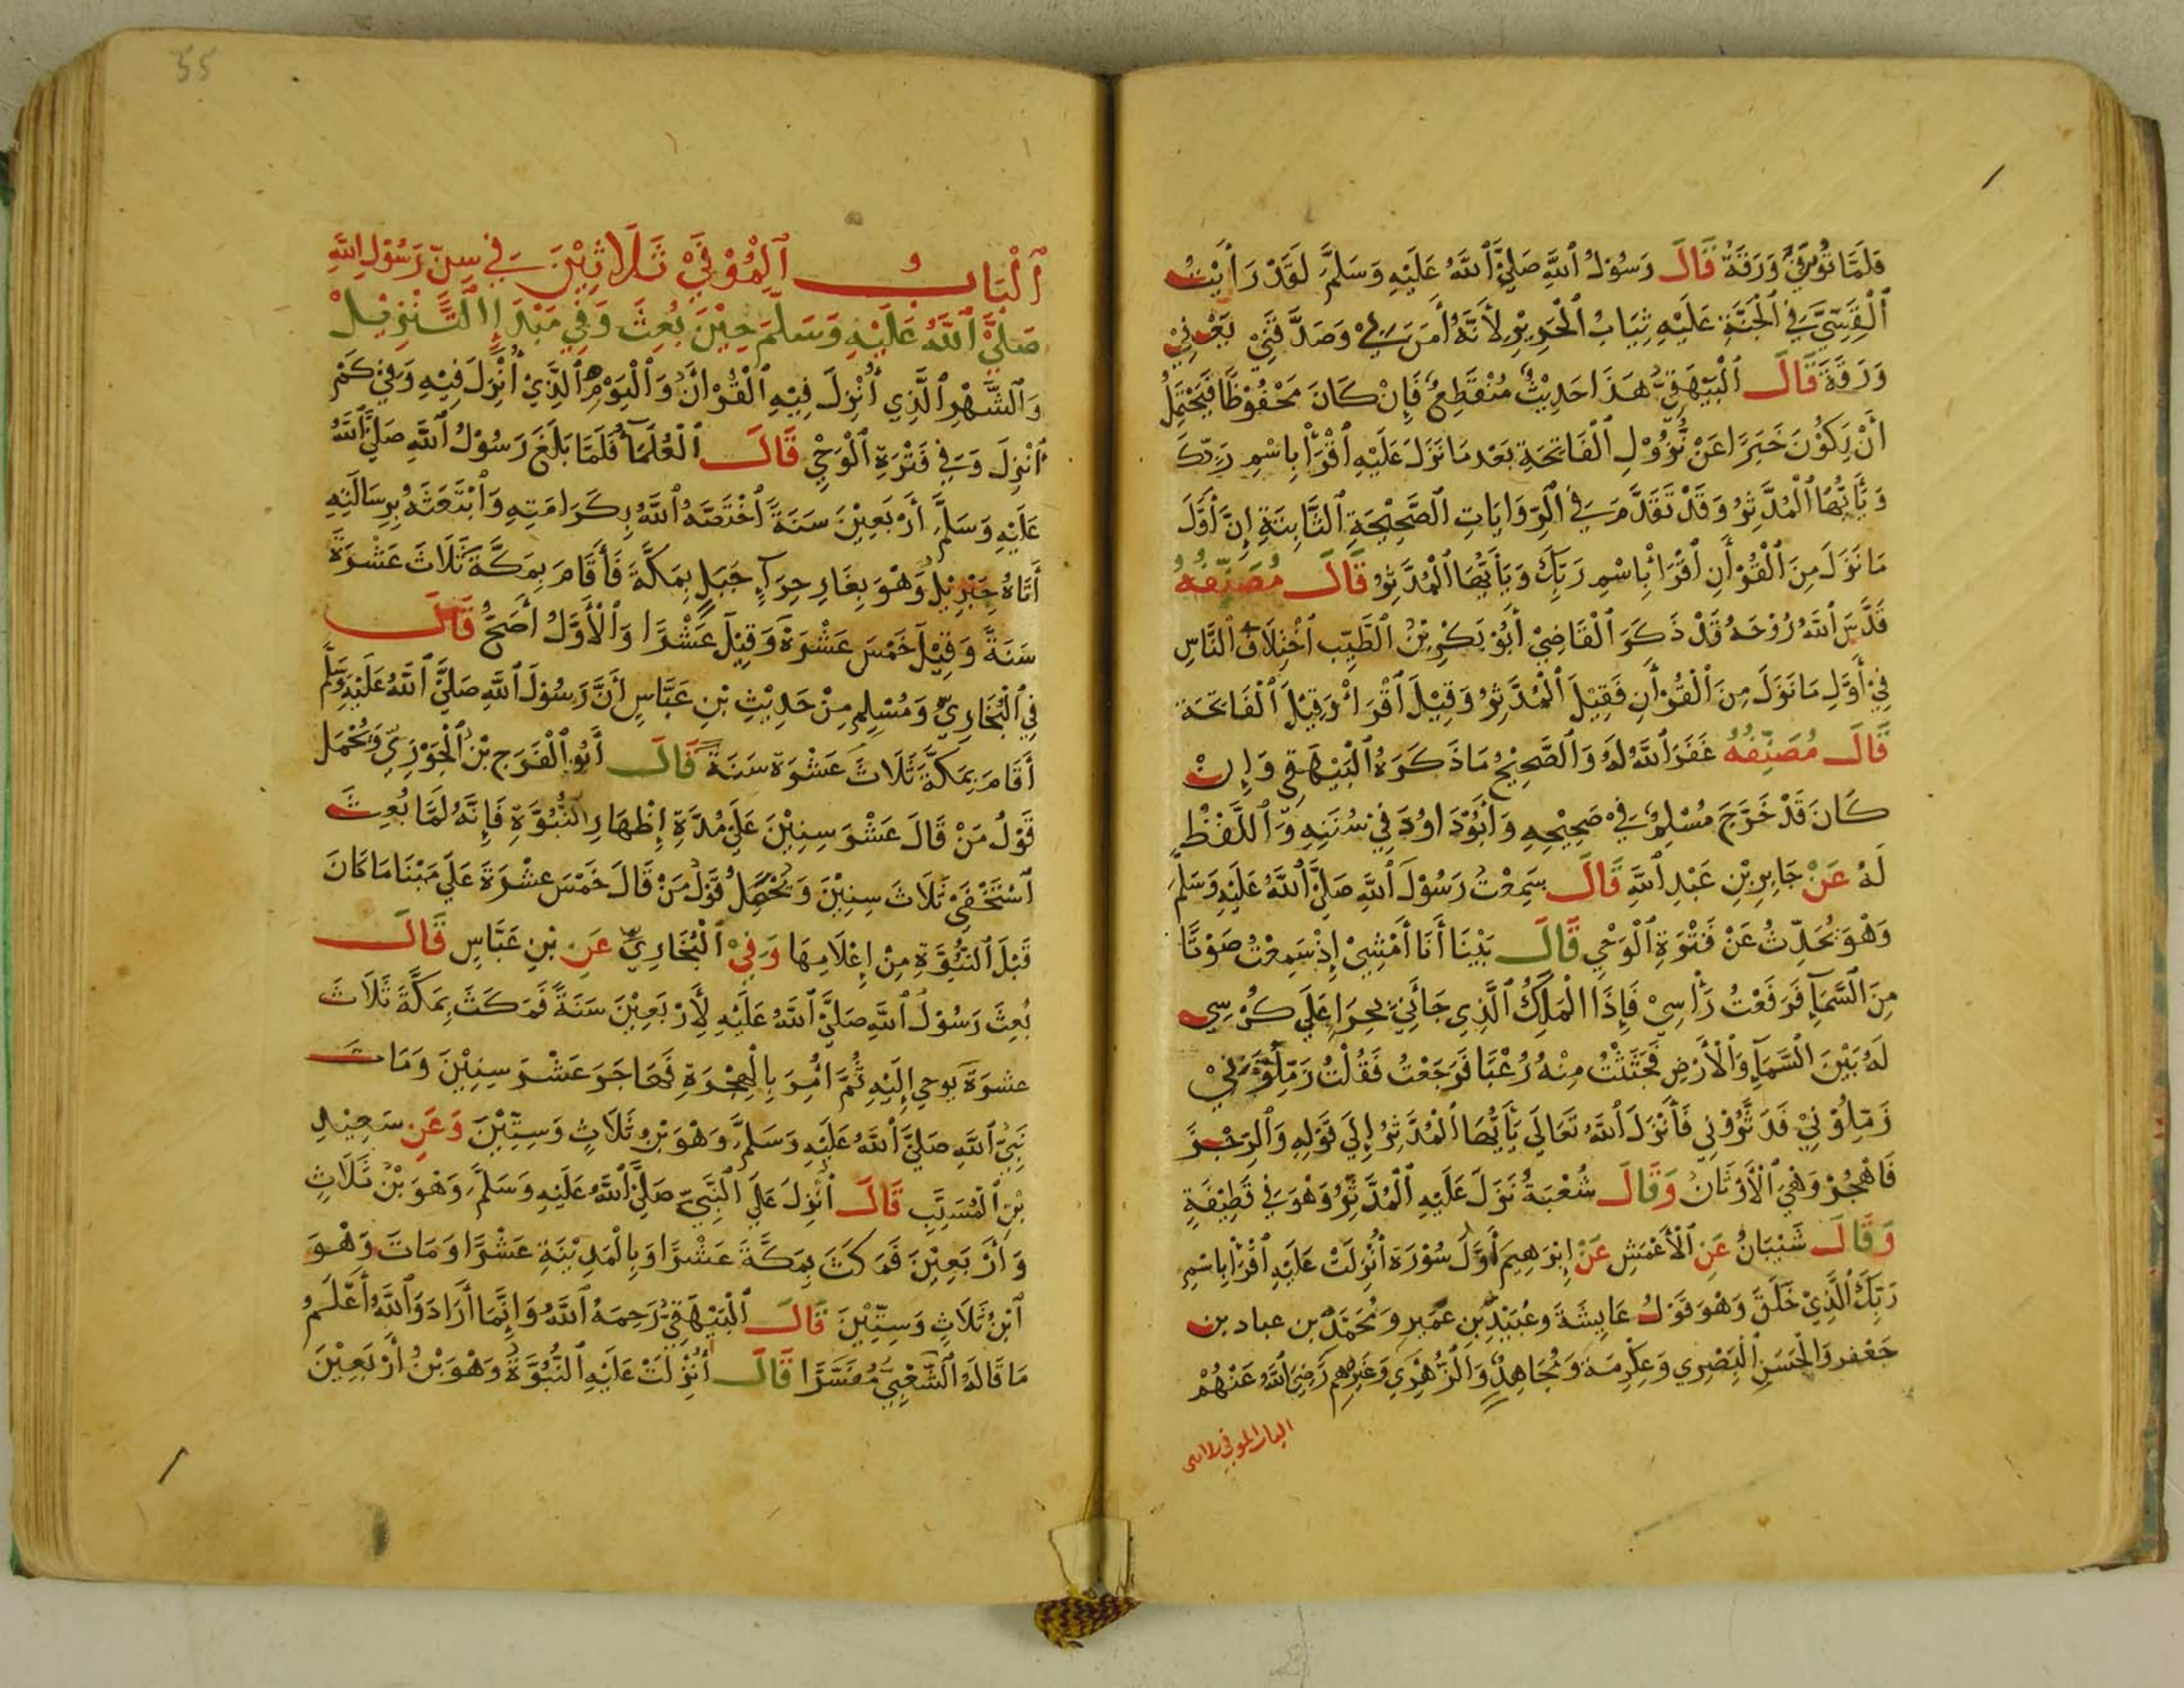 فَلَمَّا تُوُفِّيَ وَرَقَةُ قَالَ رَسُوْلُ ٱللَّهِ صَلَّيَ ٱللَّهُ عَلَيْهِ وَسَلَّمَ لَقَدْ رَأَيْتُ
ٱلْقِسِّيَّ فِي ٱلْجَنَّةِ عَلَيْهِ ثِيَابُ ٱلْحَرِيْرِ لِأَنَّهُ أَمَنَ بِيْ وَصَدَّقَنِيْ يَعْنِيْ
وَرَقَةَ قَالَ ٱلْبَيْهَقِيُّ هَذَا حَدِيْثٌ مُنْقَطِعٌ فَإِنْ كَانَ مَحْفُوْظًا فَيَحْتَمِلُ
أَنْ يَكُوْنَ خَبَرًا عَنْ نُزُوْلِ ٱلْفَاتِحَةِ بَعْدَ مَا نَزَلَ عَلَيْهِ ٱقْرَأْ بِاسْمِ رَبِّكَ
وَيَٰأَيُّهَا ٱلْمُدَّثِرُ وَقَدْ تَقَدَّمَ فِي ٱلرِّوَايَاتِ ٱلصَّحِيْحَةِ ٱلثَّابِتَةِ إِنَّ أَوَّلَ
مَا نَزَلَ مِنَ ٱلْقُرْأَنِ ٱقْرَأْ بِاسْمِ رَبِّكَ وَيَأَيُّهَا ٱلْمُدَّثِرُ قَالَ مُصَنِّفُهُ
قَدَّسَ ٱللَّهُ رُوْحَهُ قَدْ ذَكَرَ ٱلْقَاضِيْ أَبُوْ بَكْرِ بْنُ ٱلطَّيِّبِ ٱخْتِلَافَ ٱلنَّاسِ
فِيْ أَوَّلِ مَا نَزَلَ مِنَ ٱلْقُرْأَنِ فَقِيْلَ ٱلْمُدَّثِرُ وَقِيْلَ ٱقْرَأْ وَقِيْلَ ٱلْفَاتِحَةَ
قَالَ مُصَنِّفُهُ غَفَرَ ٱللَّهُ لَهُ وَٱلصَّحِيْحُ مَا ذَكَرَهُ ٱلْبَيْهَقِي وَإِنْ
كَانَ قَدْ خَرَّجَ مُسْلِمٌ فِيْ صَحِيْحِهِ وَأَبُوْدَاوُدَ فِيْ سُنَنِهِ وَٱللَّفْظُ
لَهُ عَنْ جَابِرِ بْنِ عَبْدِ ٱللَّهِ قَالَ سَمِعْتُ رَسُوْلَ ٱللَّهِ صَلَّيَ ٱللَّهُ عَلَيْهِ وَسَلَّمَ
وَهْوَ يُحَدِّثُ عَنْ فَتْرَةِ ٱلْوَحْيِ قَالَ بَيْنَا أَنَا أَمْشِيْ إِذْ سَمِعْتُ صَوْتًا
مِنَ ٱلسَّمَآءِ فَرَفَعْتُ رَأْسِيْ فَإِذَا ٱلْمَلَكُ ٱلَّذِي جَأَنِيْ بِحِرَا عَلَي كُرْسِي
لَهُ بَيْنَ ٱلسَّمَآءِ وَٱلْأَرْضِ فَجَئِثْتُ مِنْهُ رُعْبًا فَرَجَعْتُ فَقُلْتُ زَمِّلُوْنِيْ
زَمِّلُوْنِيْ فَدَثَّرُوْنِي فَأَنْزَلَ ٱللَّهُ تَعَالَي يَأَيُّهَا ٱلْمُدَّثِرُ إِلَي قَوْلِهِ وَٱلرِّجْزَ
فَاهْجُرْ وَهْيَ ٱلْأَوْثَانُ وَقَالَ شُعْبَةُ نَزَلَ عَلَيْهِ ٱلْمُدَّثِّرُ وَهْوَ فِي قَطِيْفَةٍ
وَقَالَ شَيْبَانُ عَنِ ٱلْأَعْمَشِ عَنْ إِبْرَهِيمَ أَوَّلُ سُوْرَةٍ أُنْزِلَتْ عَلَيْهِ ٱقْرَأْ بِاسْمِ
رَبِّكَ ٱلَّذِيْ خَلَقَ وَهْوَ قَوْلُ عَايِشَةَ وعُبَيْدِ بْنِ عُمَيْرٍ وَمُحَمَّدُ بن عباد بن
جَعْفَر وَٱلْحَسَنِ ٱلْبَصْرِي وَعِكْرِمَةَ وَمُجَاهِدٍ وَٱلزُّهْرِي وَغَيْرِهِمْ رَضِيَ ٱللَّهُ عَنْهُمْ
الباب الموفي ثلاثين
55
ٱلْبَابُ ٱلْمُوْفِيْ ثَلَاثِيْنَ فِي سِنِّ رَسُوْلِ اللَّهِ
صَلَّيَ ٱللَّهُ عَلَيْهِ وَسَلَّمَ حِيْنَ بُعِثَ وَفِي مَبْدَإِ ٱلتَّنْزِيْلِ
وَٱلشَّهْرِ ٱلَّذِي أُنْزِلَ فِيْهِ ٱلْقُرْأَنُ وَٱلْيَوْمِ ٱلَّذِيْ أُنْزِلَ فِيْهِ وَفِيْ كَمْ
أُنْزِلَ وَفِي فَتْرَةِ ٱلْوَحْيِ قَالَ ٱلْعُلَمَآءُ فَلَمَّا بَلَغَ رَسُوْلُ ٱللَّهِ صَلَّيَ ٱللَّهُ
عَلَيْهِ وَسَلَّمَ أَرْبَعِيْنَ سَنَةً ٱخْتَصَّهُ ٱللَّهُ بِكَرَامَتِهِ وَٱبْتَعَثَهُ بِرِسَالَتِهِ
أَتَاهُ جِبْرِيْلُ وَهْوَ بِغَارِ حِرَآءٍ جَبَلٍ بِمَكَّةَ فَأَقَامَ بِمَكَّةَ ثَلَاثَ عَشْرَةَ
سَنَةً وَقِيْلَ خَمْسَ عَشْرَةَ وَقِيْلَ عَشْرًا وَٱلْأَوَّلُ أَصَحُّ قَالَ
فِي ٱلْبُخَارِيِّ وَمُسْلِمٍ مِنْ حَدِيْثِ بْنِ عَبَّاسٍ أَنَّ رَسُوْلَ ٱللَّهِ صَلَّيَ ٱللَّهُ عَلَيْهِ وَسَلَّمَ
أَقَامَ بِمَكَّةَ ثَلَاثَ عَشْرَةَ سَنَةً قَالَ أَبُو ٱلْفَرَجِ بْنُ ٱلْجَوْزِيِّ وَيُحْمَلُ
قَوْلُ مَنْ قَالَ عَشْرَ سِنِيْنَ عَلَيْ مُدَّةِ إِظْهَارِ ٱلنُّبُوَّةِ فَإِنَّهُ لَمَّا بُعِثَ
ٱسْتَخْفَيْ ثَلَاثَ سِنِيْنَ وَيُحْمَلُ قَوْلُ مَنْ قَالَ خَمْسَ عَشْرَةَ عَلَي مَبْنَا مَا كَانَ
قَبْلَ ٱلنُّبُوَّةِ مِنْ إِعْلَامِهَا وَفِيْ ٱلْبُخَارِيِّ عَنِ بْنِ عَبَّاسٍ قَالَ
بُعِثَ رَسُوْلُ ٱللَّهِ صَلَّيَ ٱللَّهُ عَلَيْهِ لِأَرْبَعِيْنَ سَنَةً فَمَكَثَ بِمَكَّةَ ثَلَاثَ
عشْرَةَ يُوحي إِلَيْهِ ثُمَّ أُمِرَ بِالْهِجْرَةِ فَهَاجَرَ عَشْرَ سِنِيْنَ وَمَاتَ
نَبِيُّ ٱللَّهِ صَلَّيَ ٱللَّهُ عَلَيْهِ وَسَلَّمَ وَهْوَ بْنُ ثَلَاثٍ وَسِتِّيْنَ وَعَنِ سَعِيْدِ
بْنِ ٱلْمُسَيَّبِ قَالَ أُنْزِلَ عَلَي ٱلنَّبِيِّ صَلَّيَ ٱللَّهُ عَلَيْهِ وَسَلَّمَ وَهْوَ بْنُ ثَلَاثٍ
وَأَرْبَعِيْنَ فَمَكَثَ بِمَكَّةَ عَشْرًا وَبِالْمَدِيْنَةِ عَشْرًا وَمَاتَ وَهْوَ
ٱبْنُ ثَلَاثٍ وَسِتِّيْنَ قَالَ ٱلْبَيْهَقِيُّ رَحِمَهُ ٱللَّهُ وَإِنَّمَا أَرَادَ وَٱللَّهُ أَعْلَمُ
مَا قَالَهُ ٱلشَّعْبِيُّ مُفَسَّرًا قَالَ أُنْزِلَتْ عَلَيْهِ ٱلنُّبُوَّةُ وَهْوَ بْنُ أَرْبَعِيْنَ